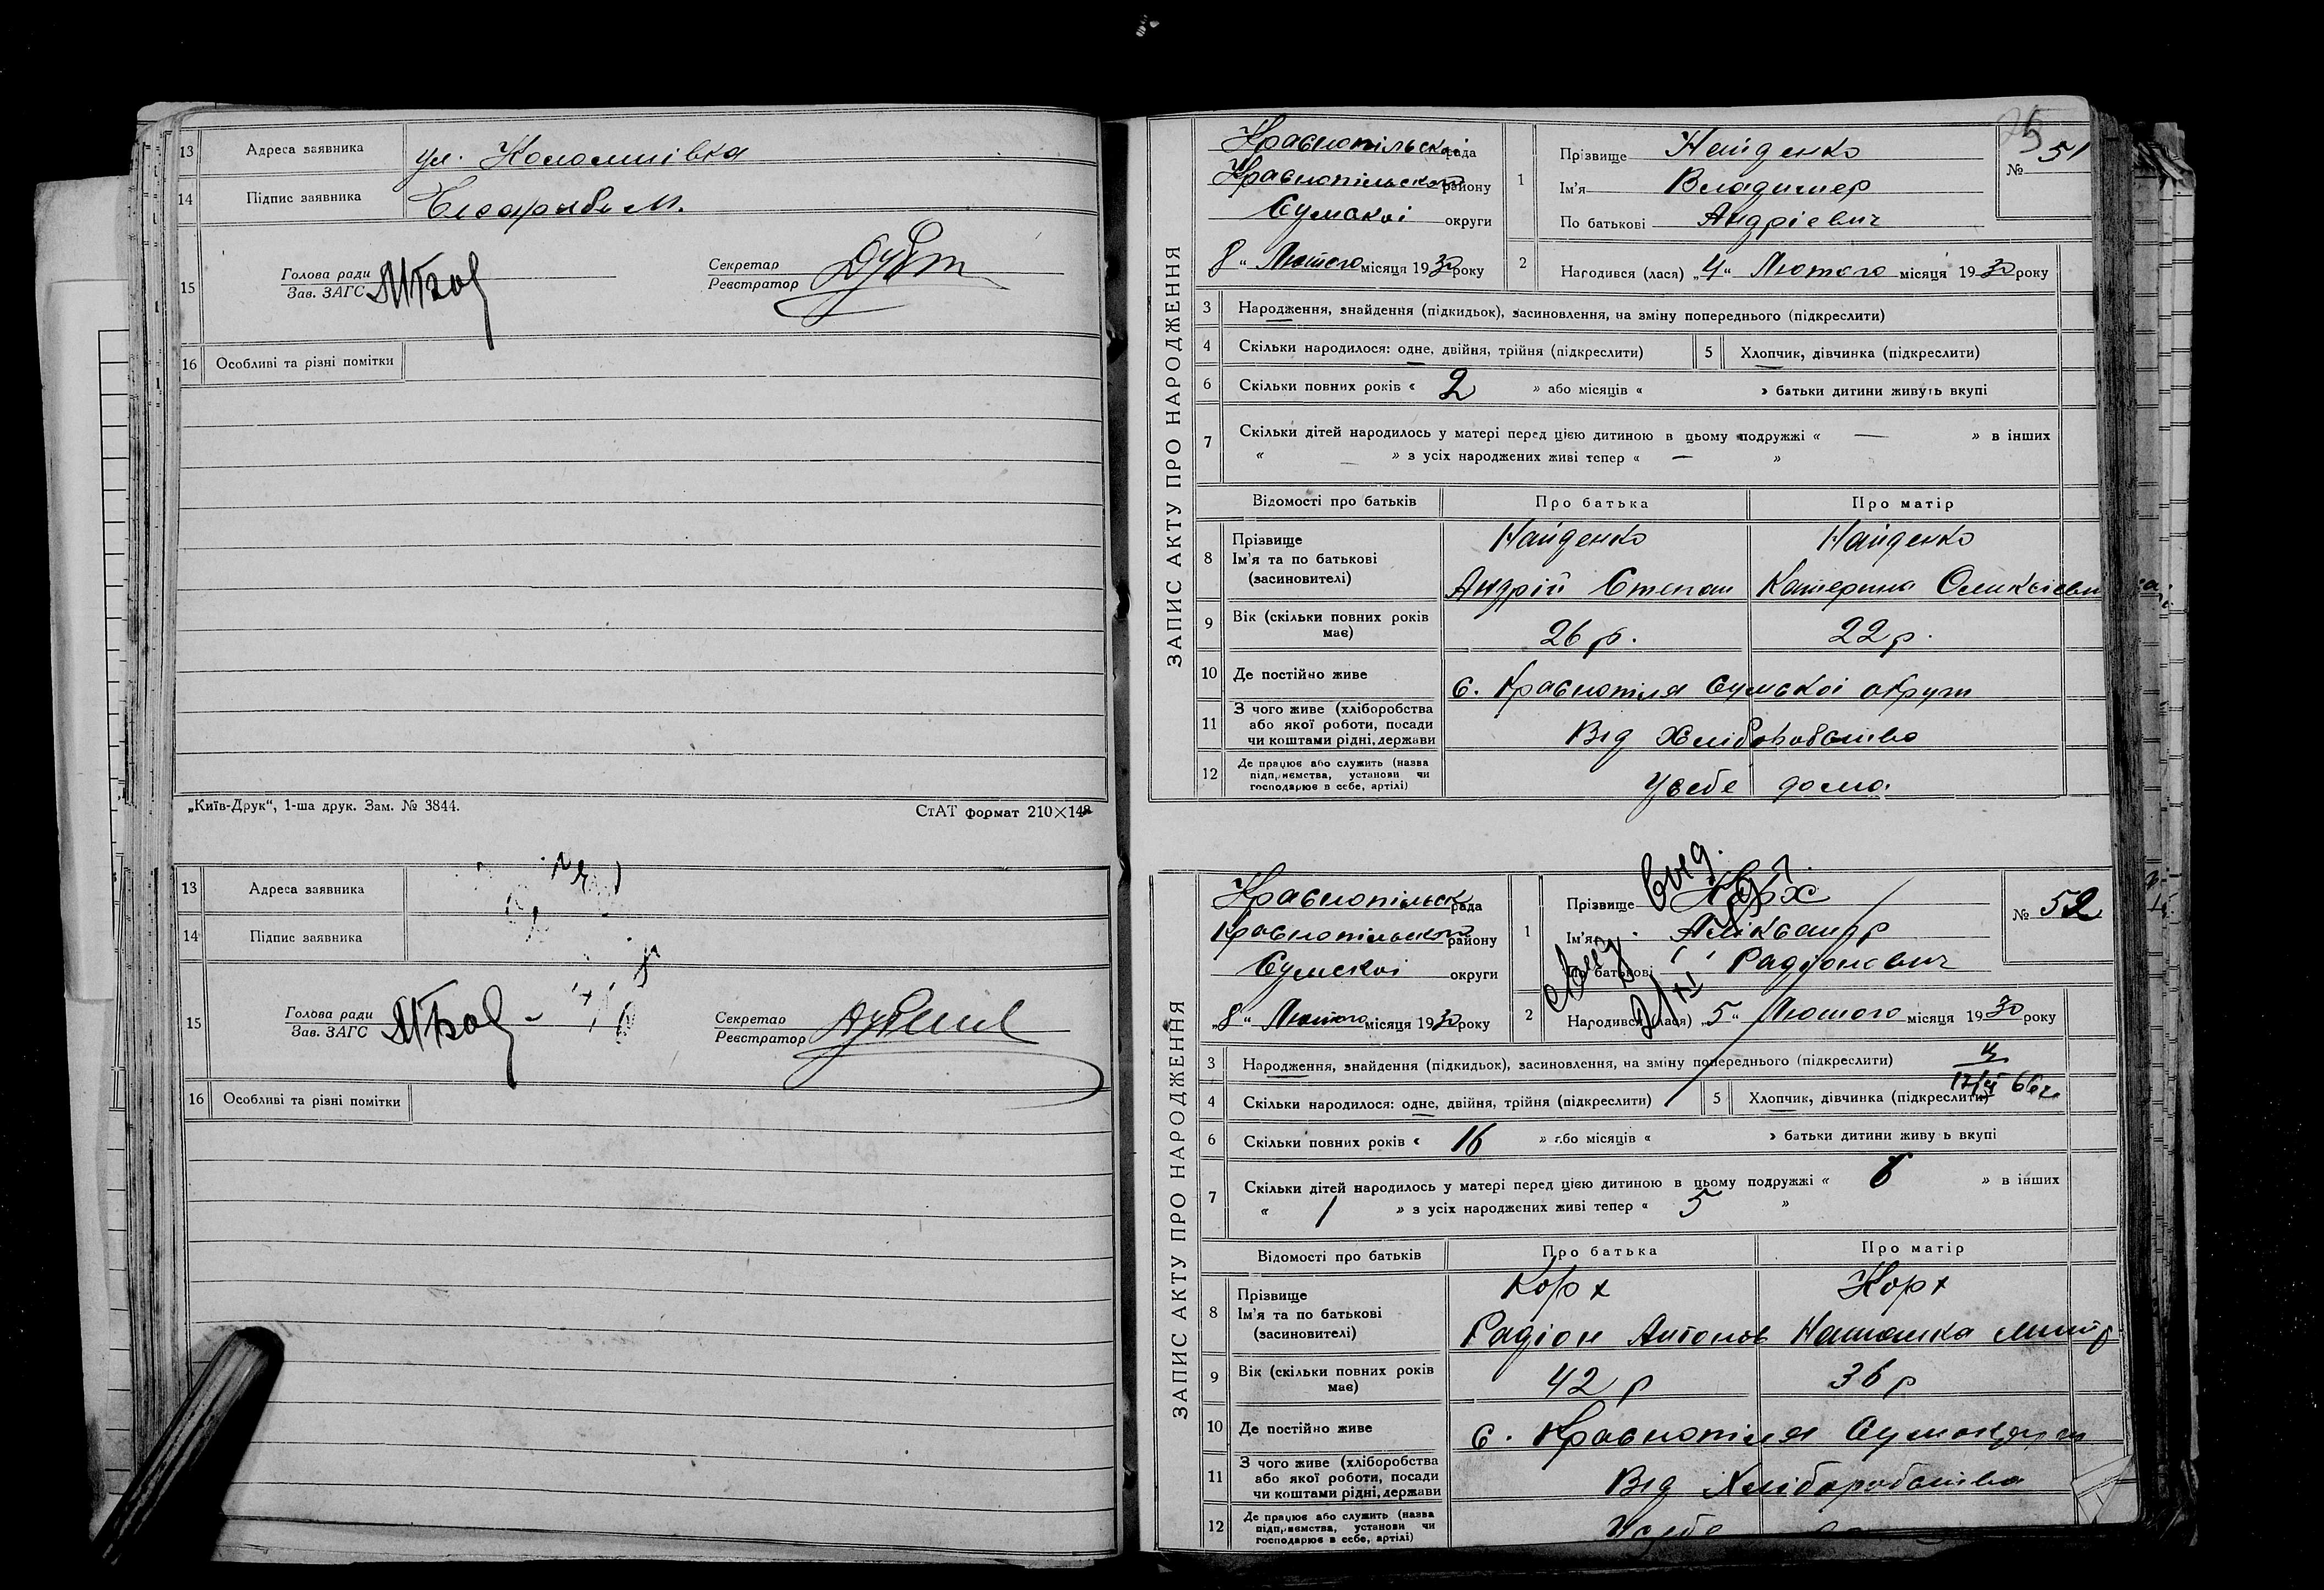 13 Адреса заявника ул. Коломиівка
14 Підпис заявника
15 Голова ради
Зав. ЗАГС
Секретар
Реєстратор
16 Особливі та різні помітки
„Київ-Друк“, 1-ша друк. Зам. № 3844.
СтАТ формат 210×148
13 Адреса заявника
14 Підпис заявника
15 Голова ради
Зав. ЗАГС
Секретар
Реєстратор
16 Особливі та різні помітки
25
ЗАПИС АКТУ ПРО НАРОДЖЕННЯ
Краснопільська рада
Краснопільского району
Сумскоі округи
8 “ Лютого місяця 1930 року
1 Прізвище Найденко
Ім’я Владимер
По батькові Андрієвич
№ 51
2 Народився (лася) „4“ Лютого місяця 1930 року
3 Народження, знайдення (підкидьок), засиновлення, на зміну попереднього (підкреслити)
4 Скільки народилося: одне, двійня, трійня (підкреслити)
5 Хлопчик, дівчинка (підкреслити)
6 Скільки повних років « 2 » або місяців « » батьки дитини живуть вкупі
7 Скільки дітей народилось у матері перед цією дитиною в цьому подружжі « — » в інших
« — » з усіх народжених живі тепер « — »
Відомості про батьків Про батька Про матір
8 Прізвище
Ім’я та по батькові
(засиновителі)
Найденко Найденко
Андрій Степан Катерина Оликсієвн
9 Вік (скільки повних років
має)
26 р. 22 р.
10 Де постійно живе с. Краснопілля Сумскоі округи
11 З чого живе (хліборобства
або якої роботи, посади
чи коштами рідні, держави
Від Хліборобства
12 Де працює або служить (назва
підприємства, установи чи
господарює в себе, артілі)
Усебе дома.
ЗАПИС АКТУ ПРО НАРОДЖЕННЯ
Краснопільск рада
Краснопільского району
Сумскоі округи
„8“ Лютого місяця 1930 року
1 Прізвище Корх
Ім’я Аліксандр
По батькові Радіонович
№ 52
2 Народився (лася) „5“ Лютого місяця 1930 року
3 Народження, знайдення (підкидьок), засиновлення, на зміну попереднього (підкреслити)
4 Скільки народилося: одне, двійня, трійня (підкреслити)
5 Хлопчик, дівчинка (підкреслити)
6 Скільки повних років « 16 » або місяців « » батьки дитини живуть вкупі
7 Скільки дітей народилось у матері перед цією дитиною в цьому подружжі « 6 » в інших
« 1 » з усіх народжених живі тепер « 5 »
Відомості про батьків Про батька Про матір
8 Прізвище
Ім’я та по батькові
(засиновителі)
Корх Корх
Радіон Антонов Наташка
9 Вік (скільки повних років
має)
42 р 36 р
10 Де постійно живе с. Краснопілля
11 З чого живе (хліборобства
або якої роботи, посади
чи коштами рідні, держави
Від Хліборобства
12 Де працює або служить (назва
підприємства, установи чи
господарює в себе, артілі)
Усебе